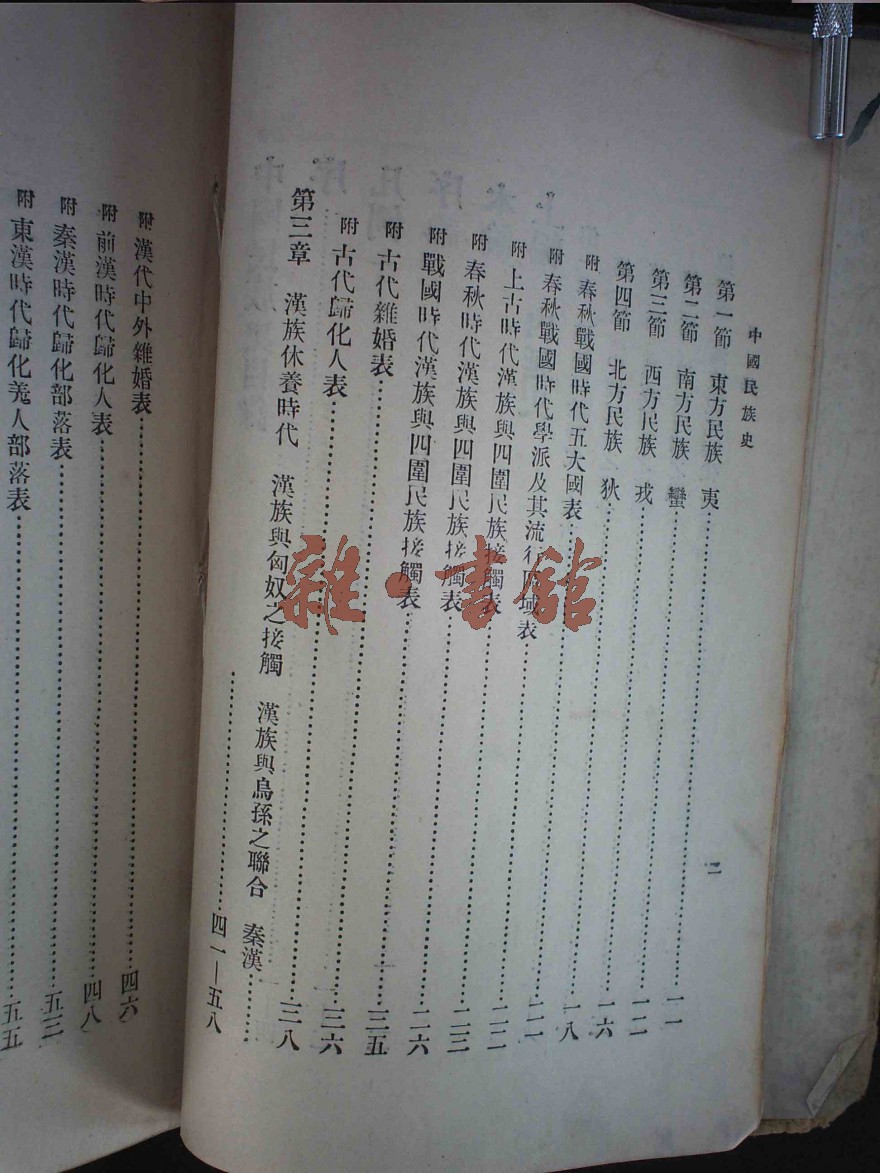 中國民族史
二
第一節 東方民族 夷……一一
第二節 南方民族 蠻……一二
第三節 西方民族 戎……一六
第四節 北方民族 狄……一八
附 春秋戰國時代五大國表……二一
附 春秋戰國時代學派及其流行區域表……二二
附 上古時代漢族與四圍民族接觸表……二三
附 春秋時代漢族與四圍民族接觸表……二六
附 戰國時代漢族與四圍民族接觸表……三五
附 古代雜婚表……三六
附 古代歸化人表……三八
第三章 漢族休養時代 漢族與匈奴之接觸 漢族與烏孫之聯合 秦漢……
……四一—五八
附 漢代中外雜婚表……四六
附 前漢時代歸化人表……四八
附 秦漢時代歸化部落表……五三
附 東漢時代歸化羗人部落表……五五
雜·書館